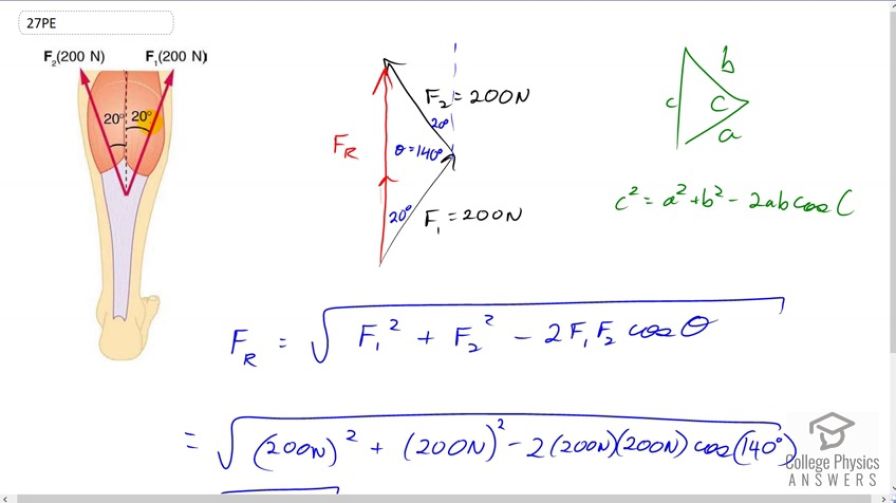 27PE
F₂(200 N) F₁(200 N)
20° 20°
F_R
F₂ = 200N
20°
θ = 140°
20°
F₁ = 200N
b
c C
a
c² = a² + b² - 2ab cos C
F_R = √(F₁² + F₂² - 2F₁F₂ cos θ)
= √((200N)² + (200N)² - 2(200N)(200N) cos(140°))
College Physics
ANSWERS